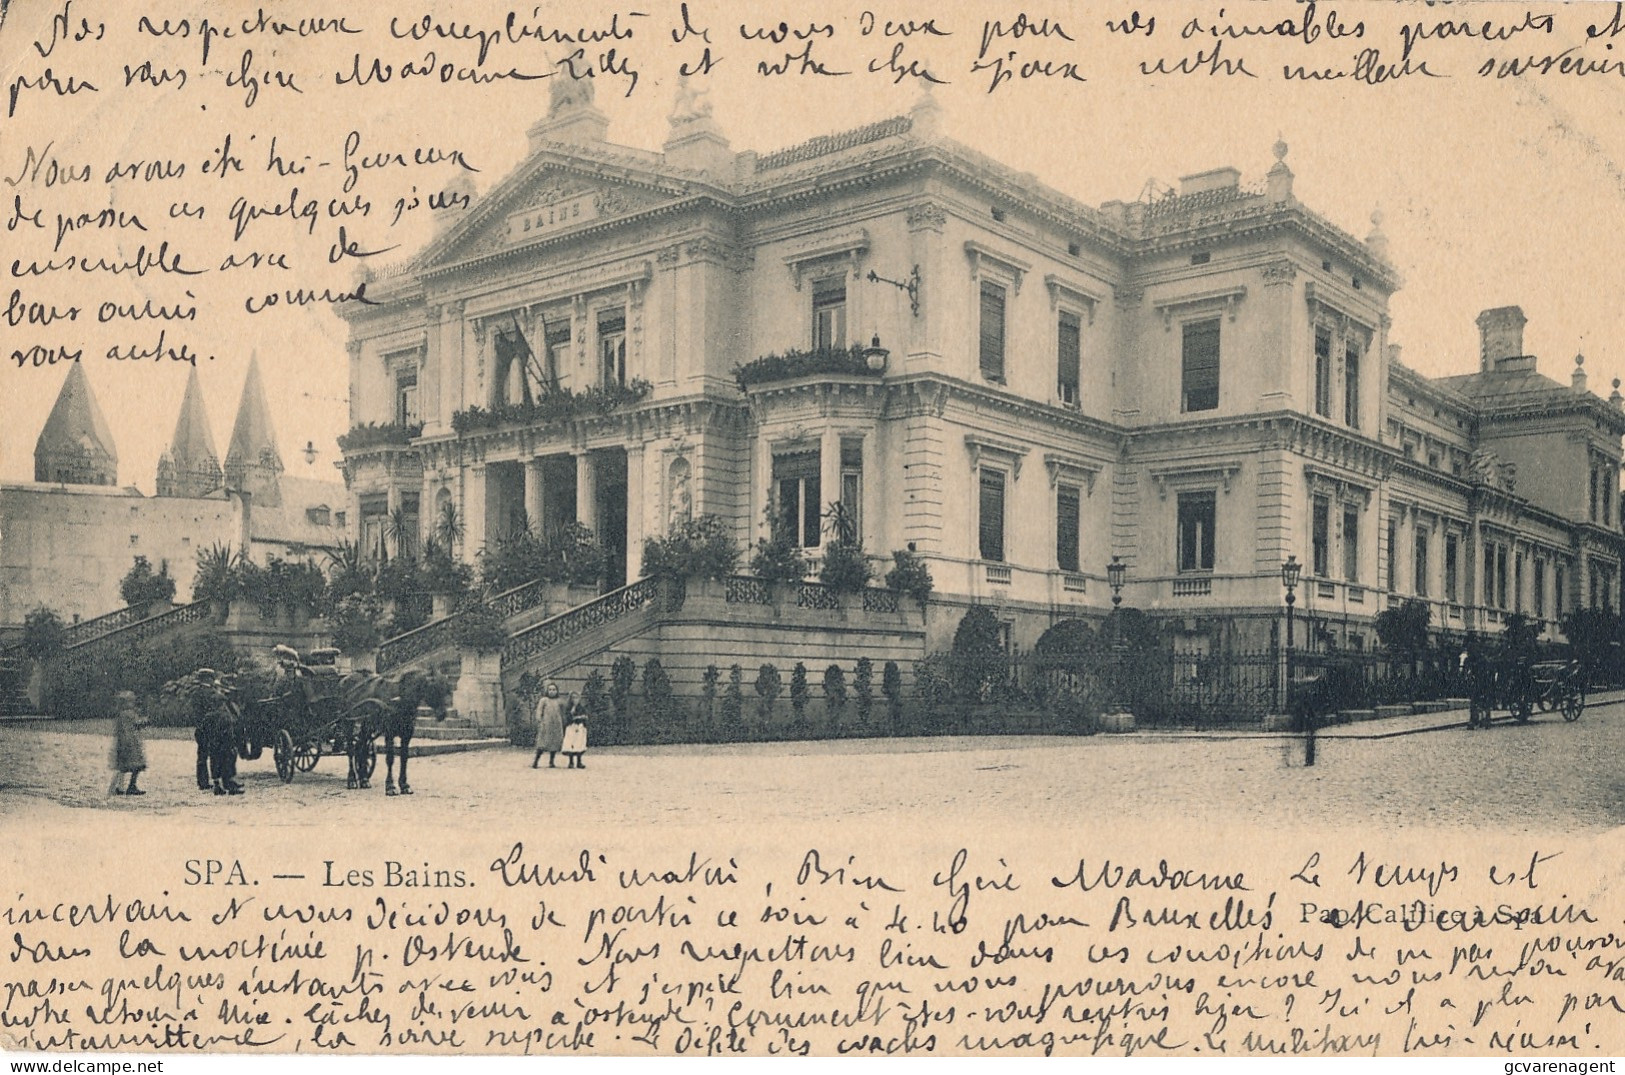 Nos respectueux compliments de nous deux pour vos aimables parents et
pour vous chère Madame Lilly et votre cher époux notre meilleur souvenir
Nous avons été très-heureux
de passer ces quelques jours
ensemble avec de
bons amis comme
vous autres.
BAINS
SPA. — Les Bains.
Pap. Califice à Spa
Lundi matin, Bien chère Madame, Le temps est
incertain et nous décidons de partir ce soir à 4.40 pour Bruxelles et demain
dans la matinée p. Ostende. Nous regrettons bien dans ces conditions de ne pas pouvoir
passer quelques instants avec vous et j'espère bien que nous pourrons encore nous revoir avant
votre retour à Nice. Tâchez de venir à Ostende? Comment êtes-vous rentrés hier? Ici il a plu par
intermittence, la soirée superbe. Le défilé des coachs magnifique. Le military très-réussi.
gcvarenagent